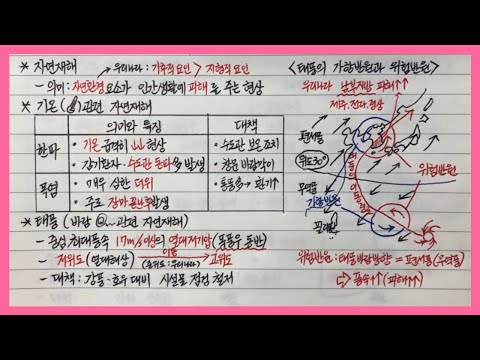 * 자연재해
우리나라 : 기후적 요인 > 지형적 요인
- 의미 : 자연환경 요소가 인간생활에 피해를 주는 현상
* 기온( )관련 자연재해
의미와 특징
대책
한파
· 기온 급격히 ↓↓ 현상
· 감기환자·수도관 동파 多 발생
· 수도관 보온 조치
· 창문 바람막이
폭염
· 매우 심한 더위
· 주로 장마 끝난 후 발생
· 통풍 → 환기↑
* 태풍 (바람 관련 자연재해)
- 중심 최대풍속 17m/s 이상의 열대저기압 (폭풍우 동반)
- 저위도(열대해상) 이동 고위도
(중위도 : 우리나라)
- 대책 : 강풍·호우 대비 시설물 점검 철저
<태풍의 가항반원과 위험반원>
우리나라 남부지방 피해↑↑
편서풍
위도30°
무역풍
가항반원
위험반원
위험반원 : 태풍바람방향 = 편서풍(무역풍)
⇨ 풍속↑↑ (피해↑↑)